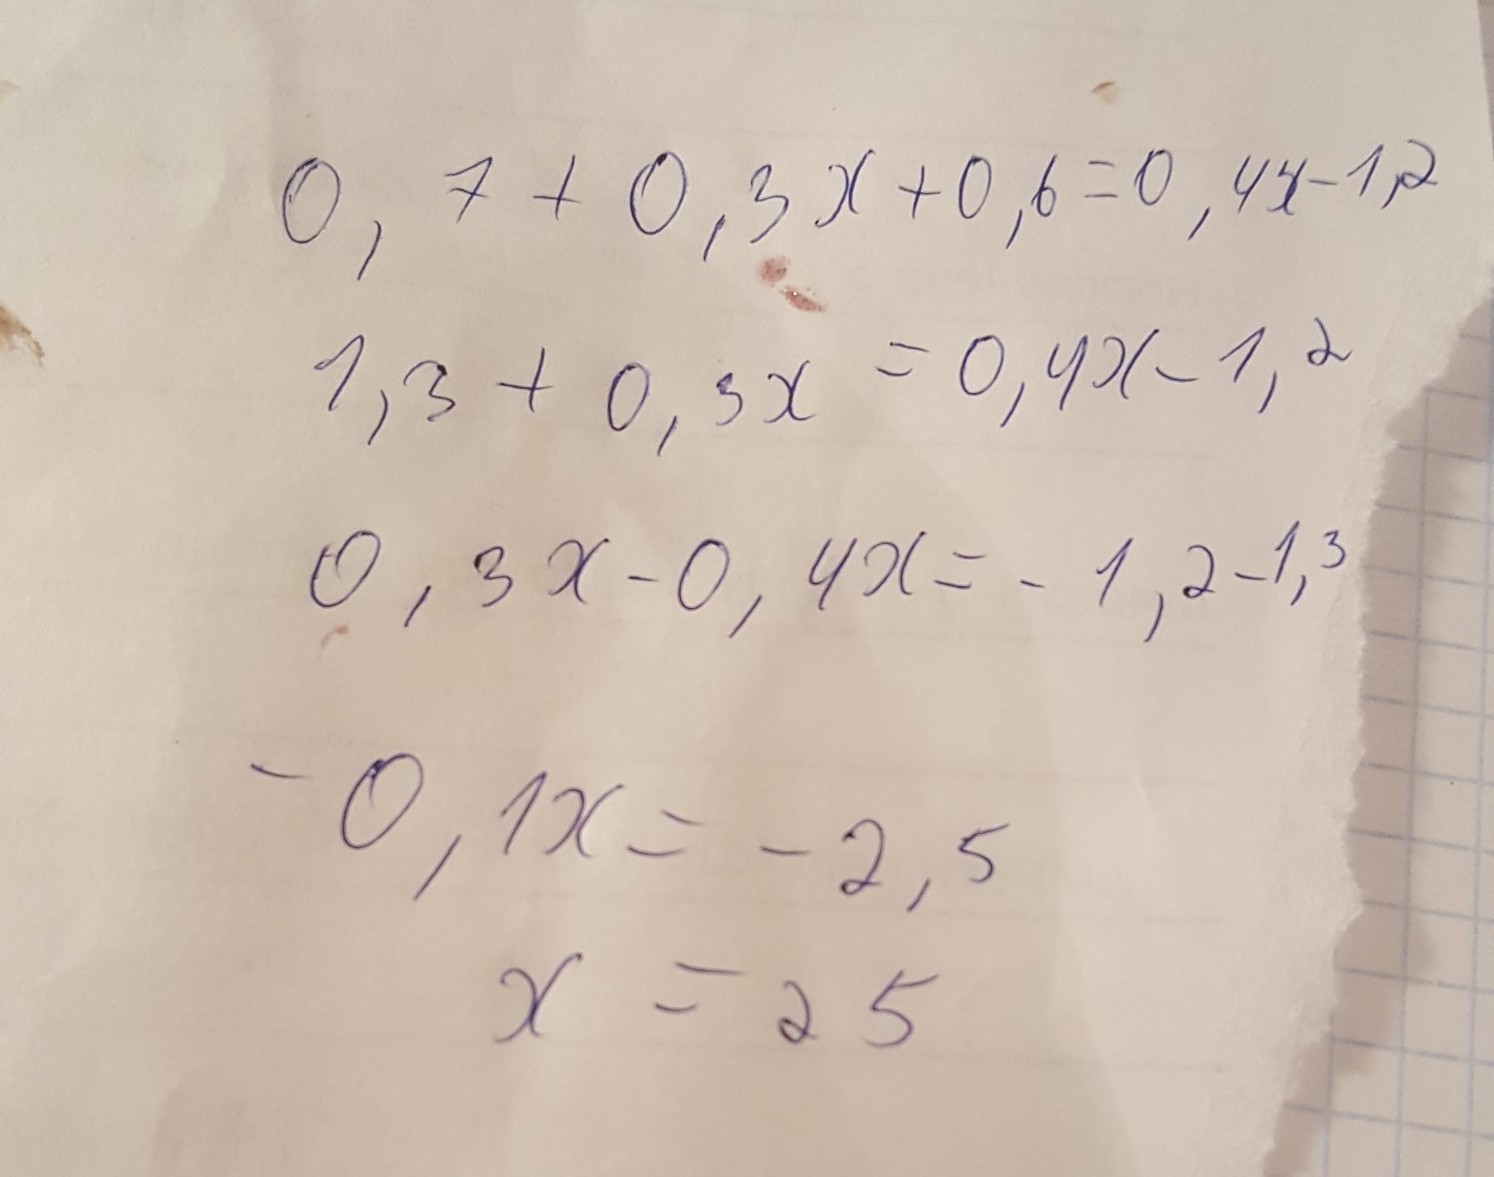 0,7+0,3x+0,6=0,4x-1,2
1,3+0,3x=0,4x-1,2
0,3x-0,4x=-1,2-1,3
-0,1x=-2,5
x=25